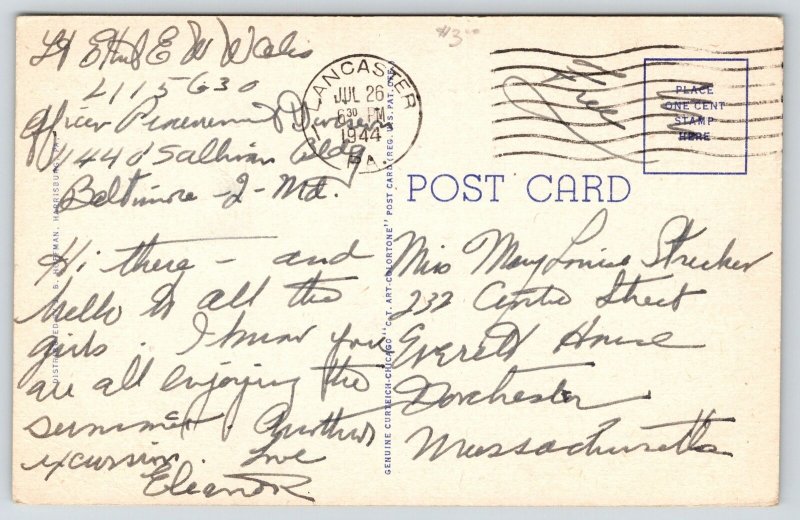 L115630
Officer Procurement Division
O'Sullivan Bldg
Baltimore - 2 - Md.
Hi there - and
hello to all the
girls. I know you
are all enjoying the
summer. Another
excursion. Love
Eleanor
$3
LANCASTER
JUL 26
6 30 PM
1944
PA.
Free
PLACE
ONE CENT
STAMP
HERE
POST CARD
Miss Mary Louise Strecker
232 Centre Street
Everett House
Dorchester
Massachusetts
GENUINE CURTEICH-CHICAGO "C.T. ART-COLORTONE" POST CARD (REG. U.S. PAT. OFF.)
DISTRIBUTED B. HOFFMAN, HARRISBURG, PA.